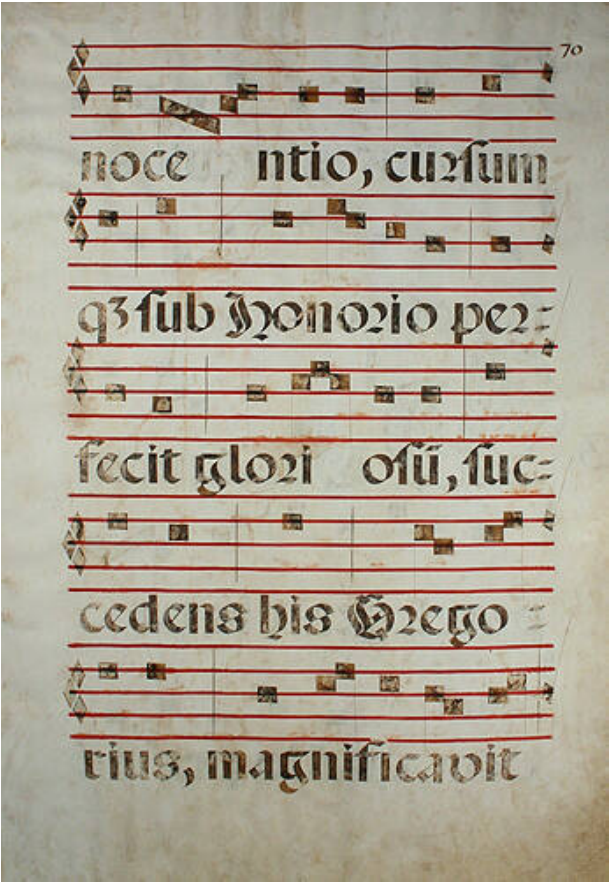 70
noce ntio, cursum
qꝫ sub Honorio per=
fecit glori osū, suc=
cedens his Grego =
rius, magnificavit